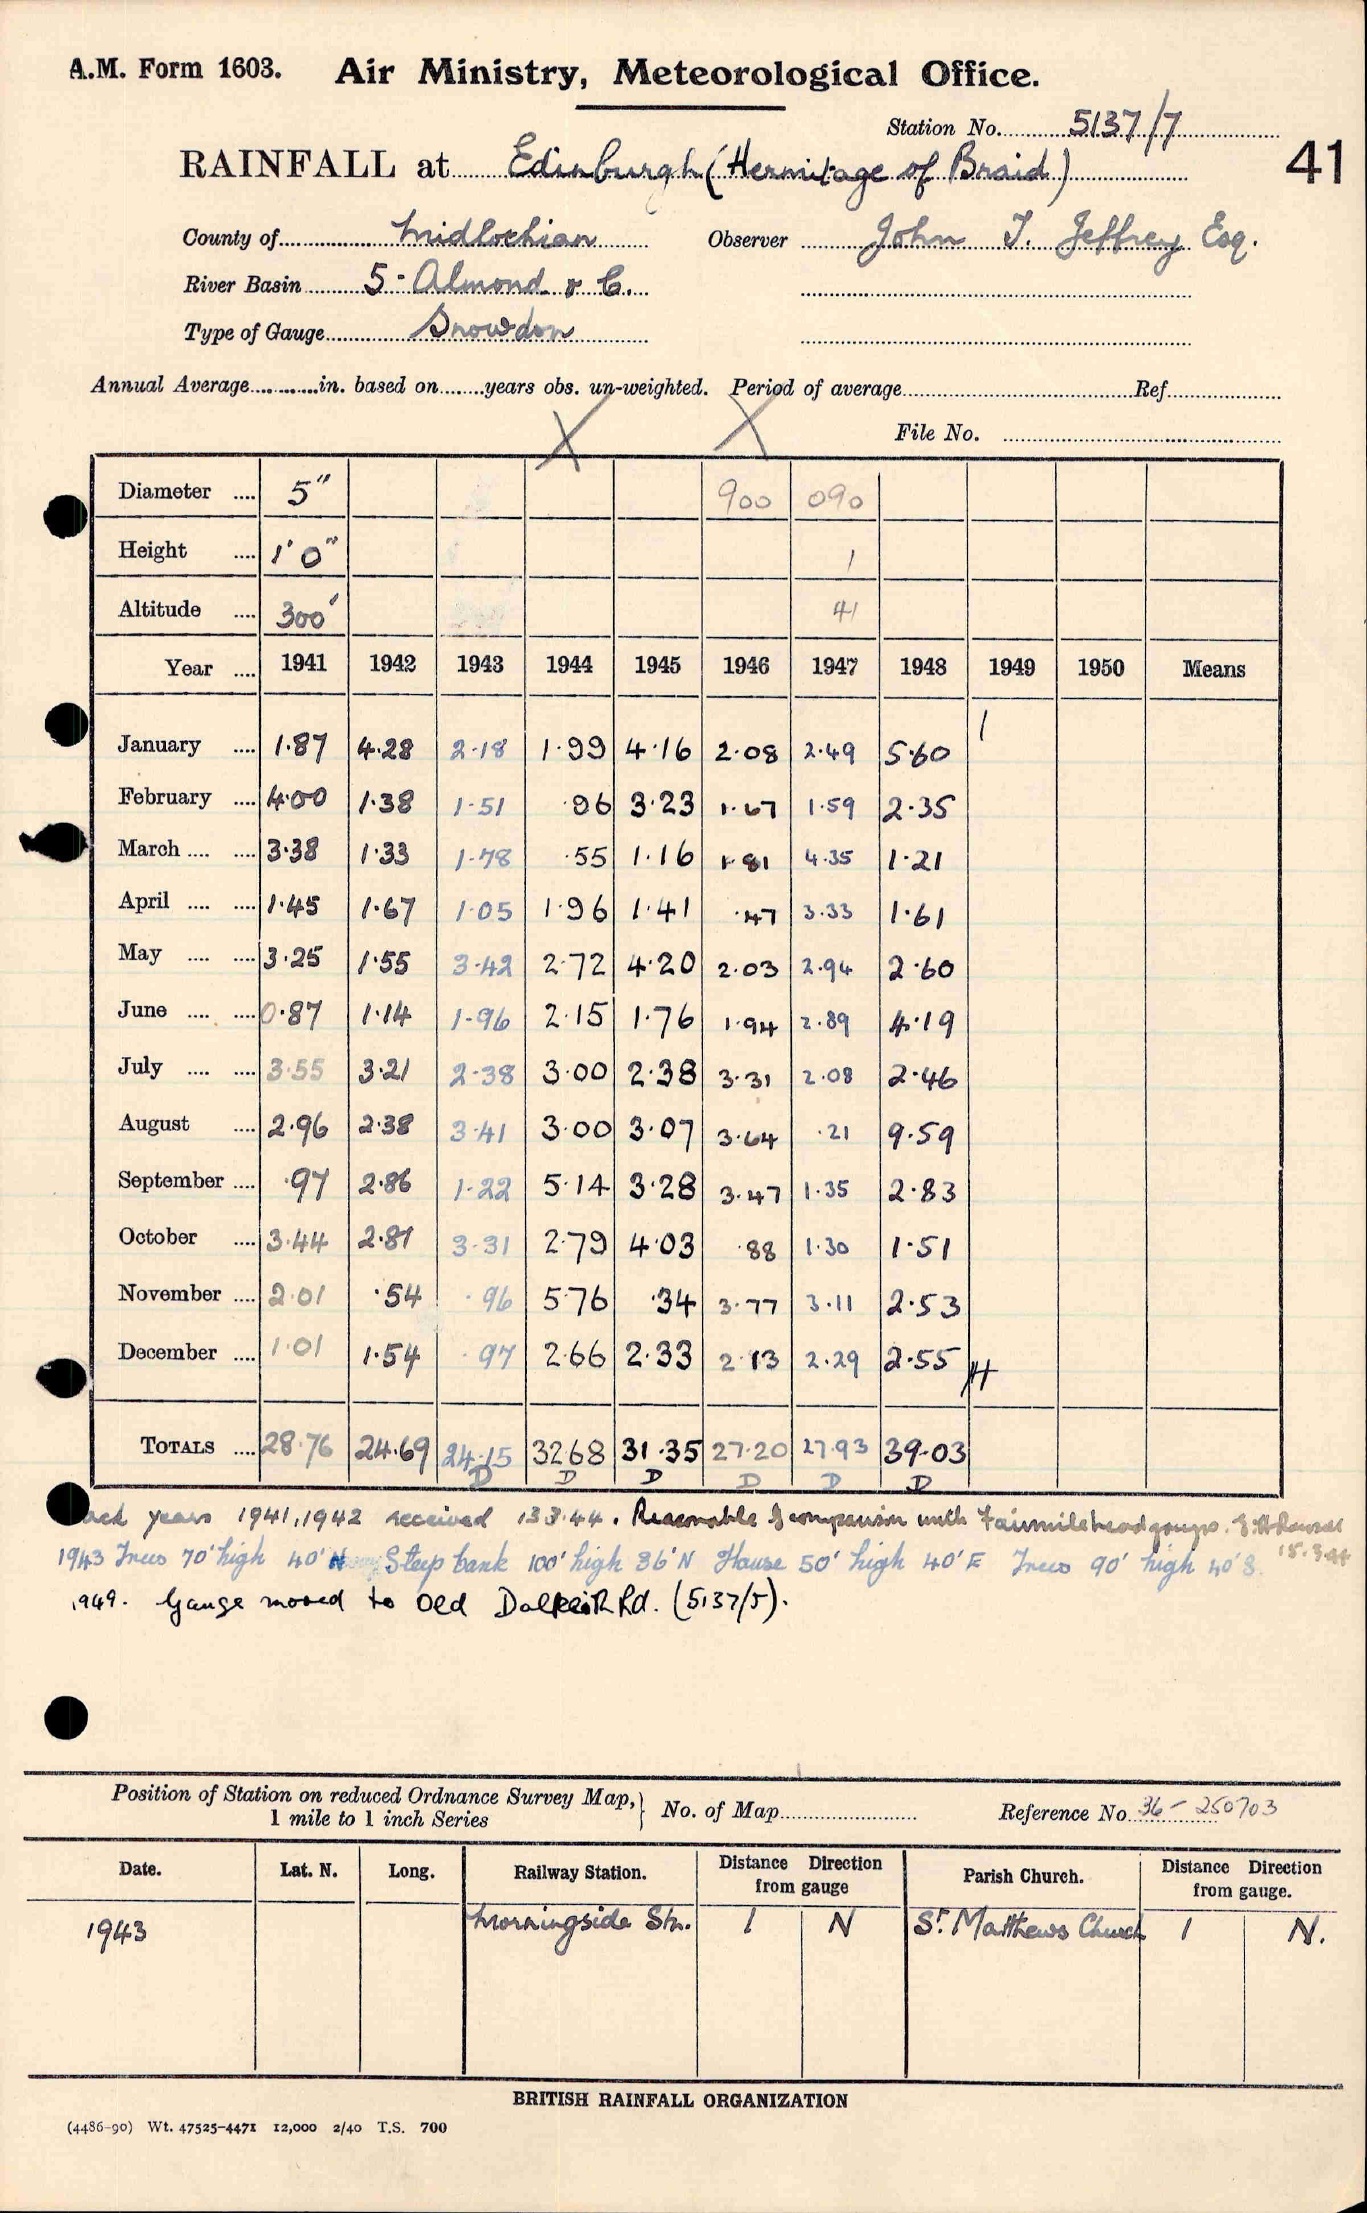 A.M. Form 1603. Air Ministry, Meteorological Office.
Station No. 5137/7
RAINFALL at Edinburgh (Hermitage of Braid) 41
County of Midlothian Observer John T. Jeffrey Esq.
River Basin 5 - Almond & C.
Type of Gauge Snowdon
Annual Average in. based on years obs. un-weighted. Period of average Ref
File No.
Diameter 5" 900 090
Height 1' 0" 1
Altitude 300' 41
Year 1941 1942 1943 1944 1945 1946 1947 1948 1949 1950 Means
January 1.87 4.28 2.18 1.99 4.16 2.08 2.49 5.60
February 4.00 1.38 1.51 .96 3.23 1.67 1.59 2.35
March 3.38 1.33 1.78 .55 1.16 1.81 4.35 1.21
April 1.45 1.67 1.05 1.96 1.41 .47 3.33 1.61
May 3.25 1.55 3.42 2.72 4.20 2.03 2.94 2.60
June 0.87 1.14 1.96 2.15 1.76 1.94 2.89 4.19
July 3.55 3.21 2.38 3.00 2.38 3.31 2.08 2.46
August 2.96 2.38 3.41 3.00 3.07 3.64 .21 9.59
September .97 2.86 1.22 5.14 3.28 3.47 1.35 2.83
October 3.44 2.81 3.31 2.79 4.03 .88 1.30 1.51
November 2.01 .54 .96 5.76 .34 3.77 3.11 2.53
December 1.01 1.54 .97 2.66 2.33 2.13 2.29 2.55
TOTALS 28.76 24.69 24.15 32.68 31.35 27.20 27.93 39.03
D D D D D D
years 1941, 1942 received 13.3.44. Reasonable comparison with Fairmilehead
15.3.44
1943 Trees 70' high 40' Steep bank 100' high 86' N House 50' high 40' E Trees 90' high 40' S.
1949. Gauge moved to Old Dalkeith Rd. (5137/5).
Position of Station on reduced Ordnance Survey Map, 1 mile to 1 inch Series } No. of Map Reference No. 36 - 250703
Date. Lat. N. Long. Railway Station. Distance Direction from gauge Parish Church. Distance Direction from gauge.
1943 Morningside Stn. 1 N St. Matthews Church 1 N.
BRITISH RAINFALL ORGANIZATION
(4486-90) Wt. 47525-4471 12,000 2/40 T.S. 700